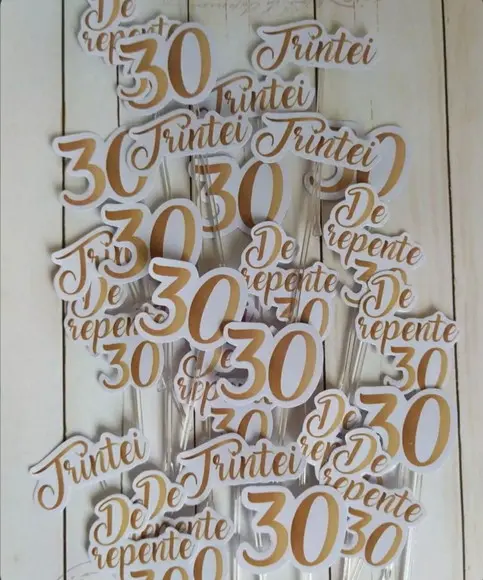 De
repente
30
Trintei
Trintei
Trintei
Trintei
30
30
30
30
De
repente
30
De
repente
30
Trin
De
repen
30
30
De
repente
30
30
De
rep
30
30
De
re
De
repente
30
Trintei
Trintei
De
De
repente
30
30